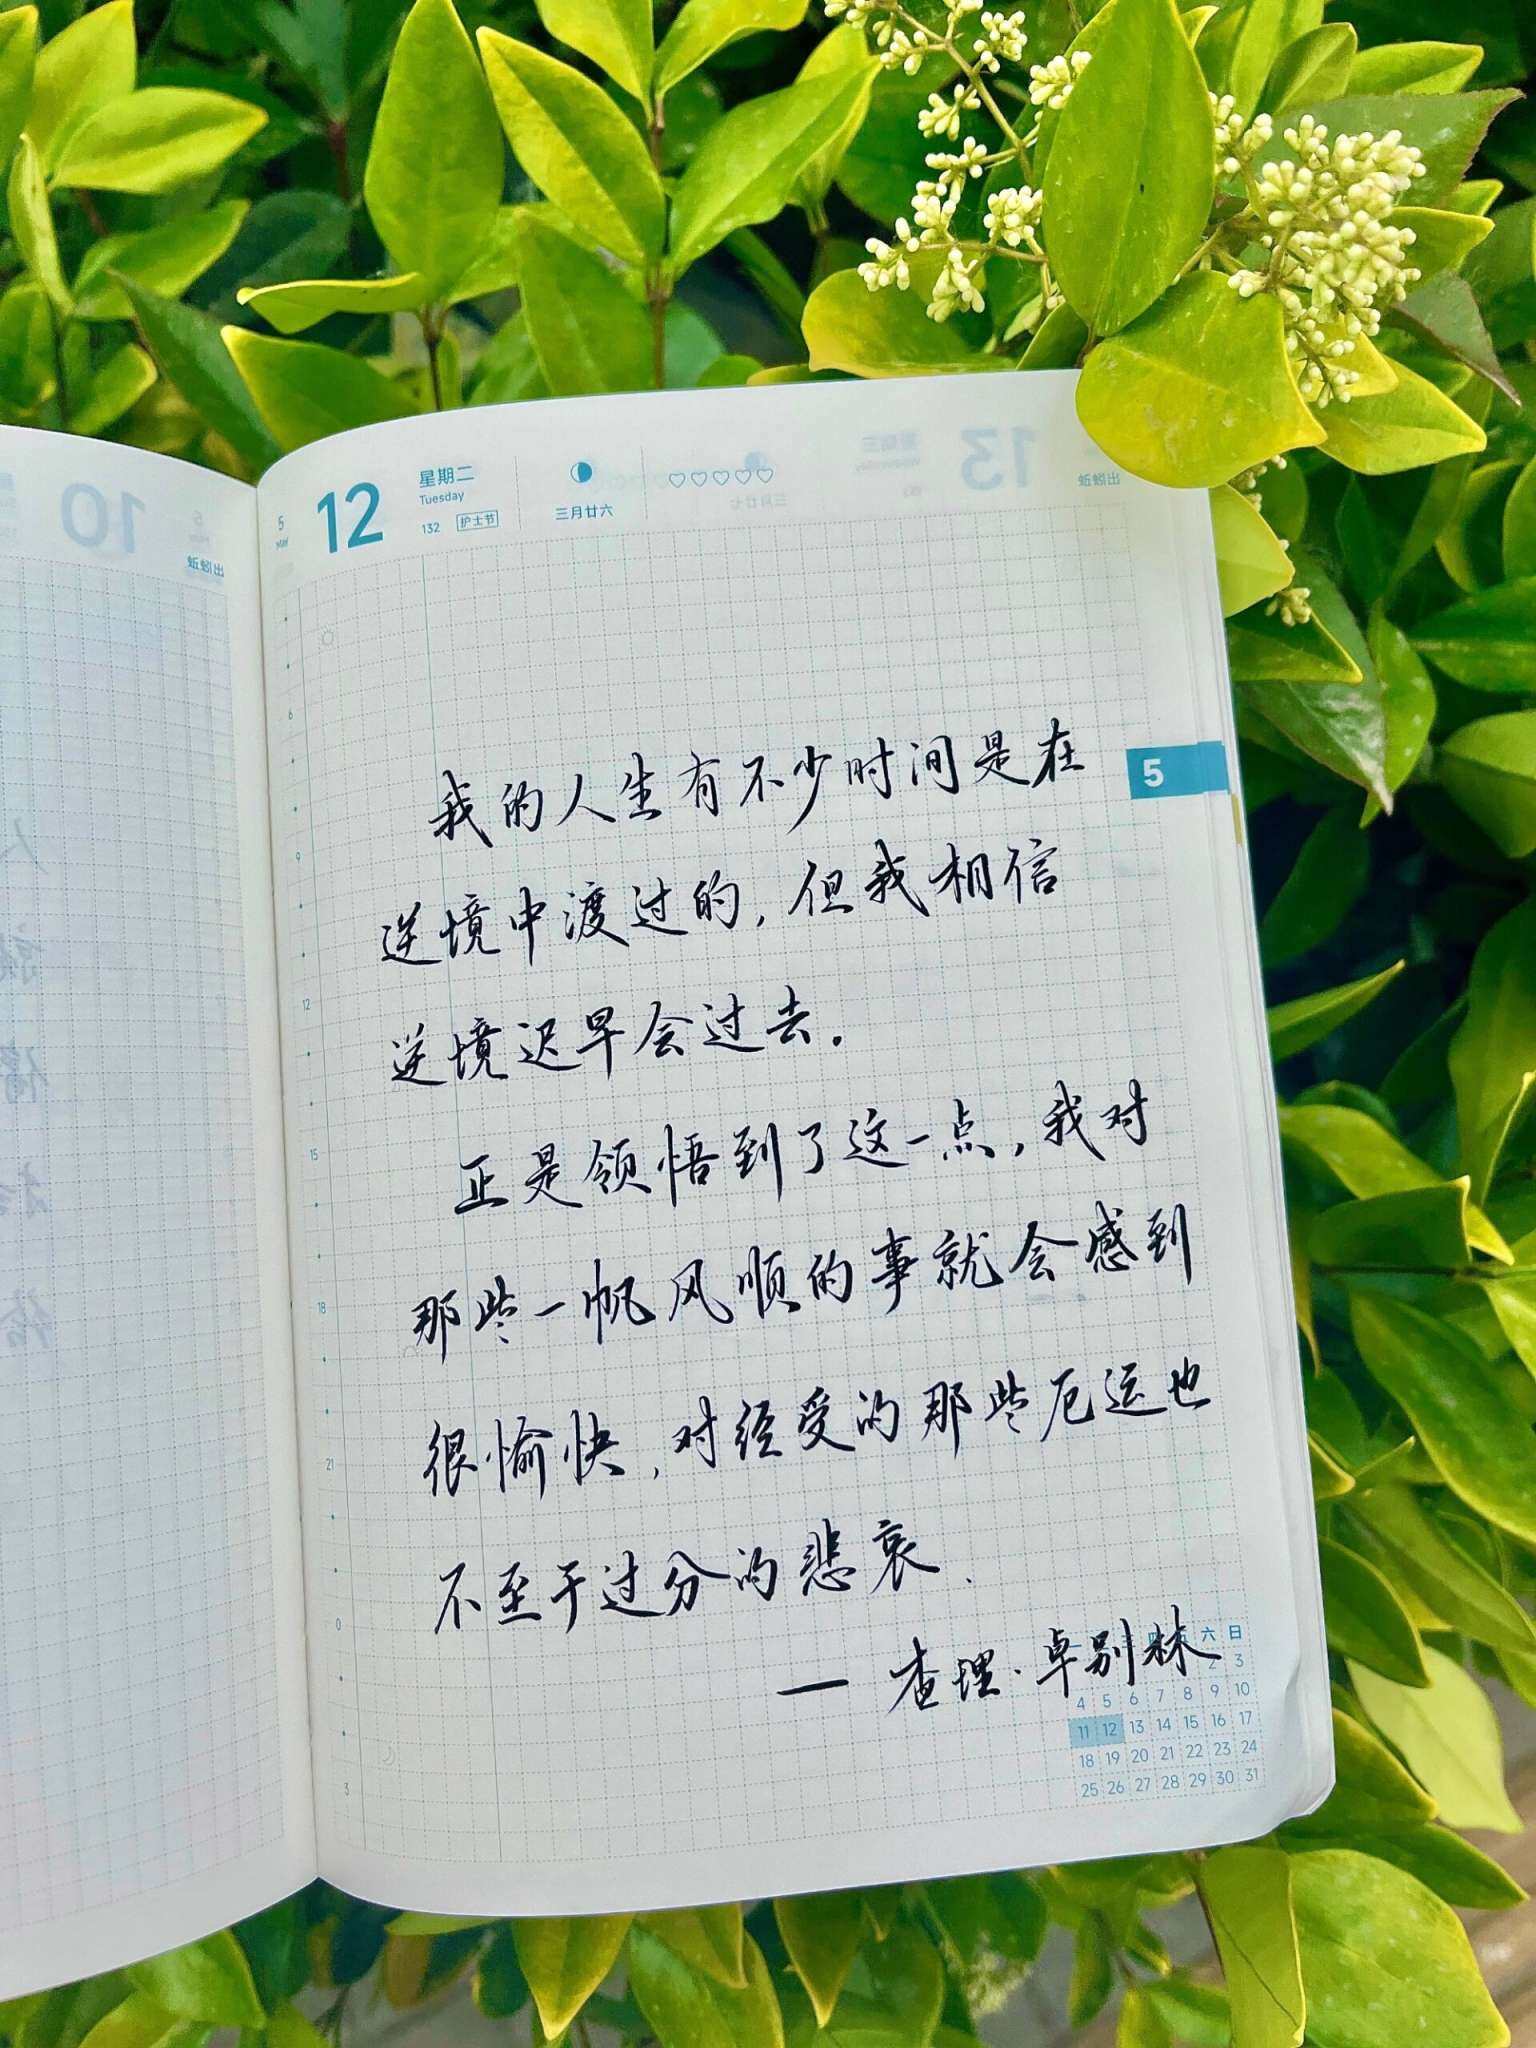 5
May
12
星期二
Tuesday
132 护士节
三月廿六
蚯蚓出
我的人生有不少时间是在
逆境中渡过的,但我相信
逆境迟早会过去.
正是领悟到了这一点,我对
那些一帆风顺的事就会感到
很愉快,对经受的那些厄运也
不至于过分的悲哀.
— 查理·卓别林
5
6
9
12
15
18
21
0
3
六 日
2 3
4 5 6 7 8 9 10
11 12 13 14 15 16 17
18 19 20 21 22 23 24
25 26 27 28 29 30 31
10
13
蚯蚓出